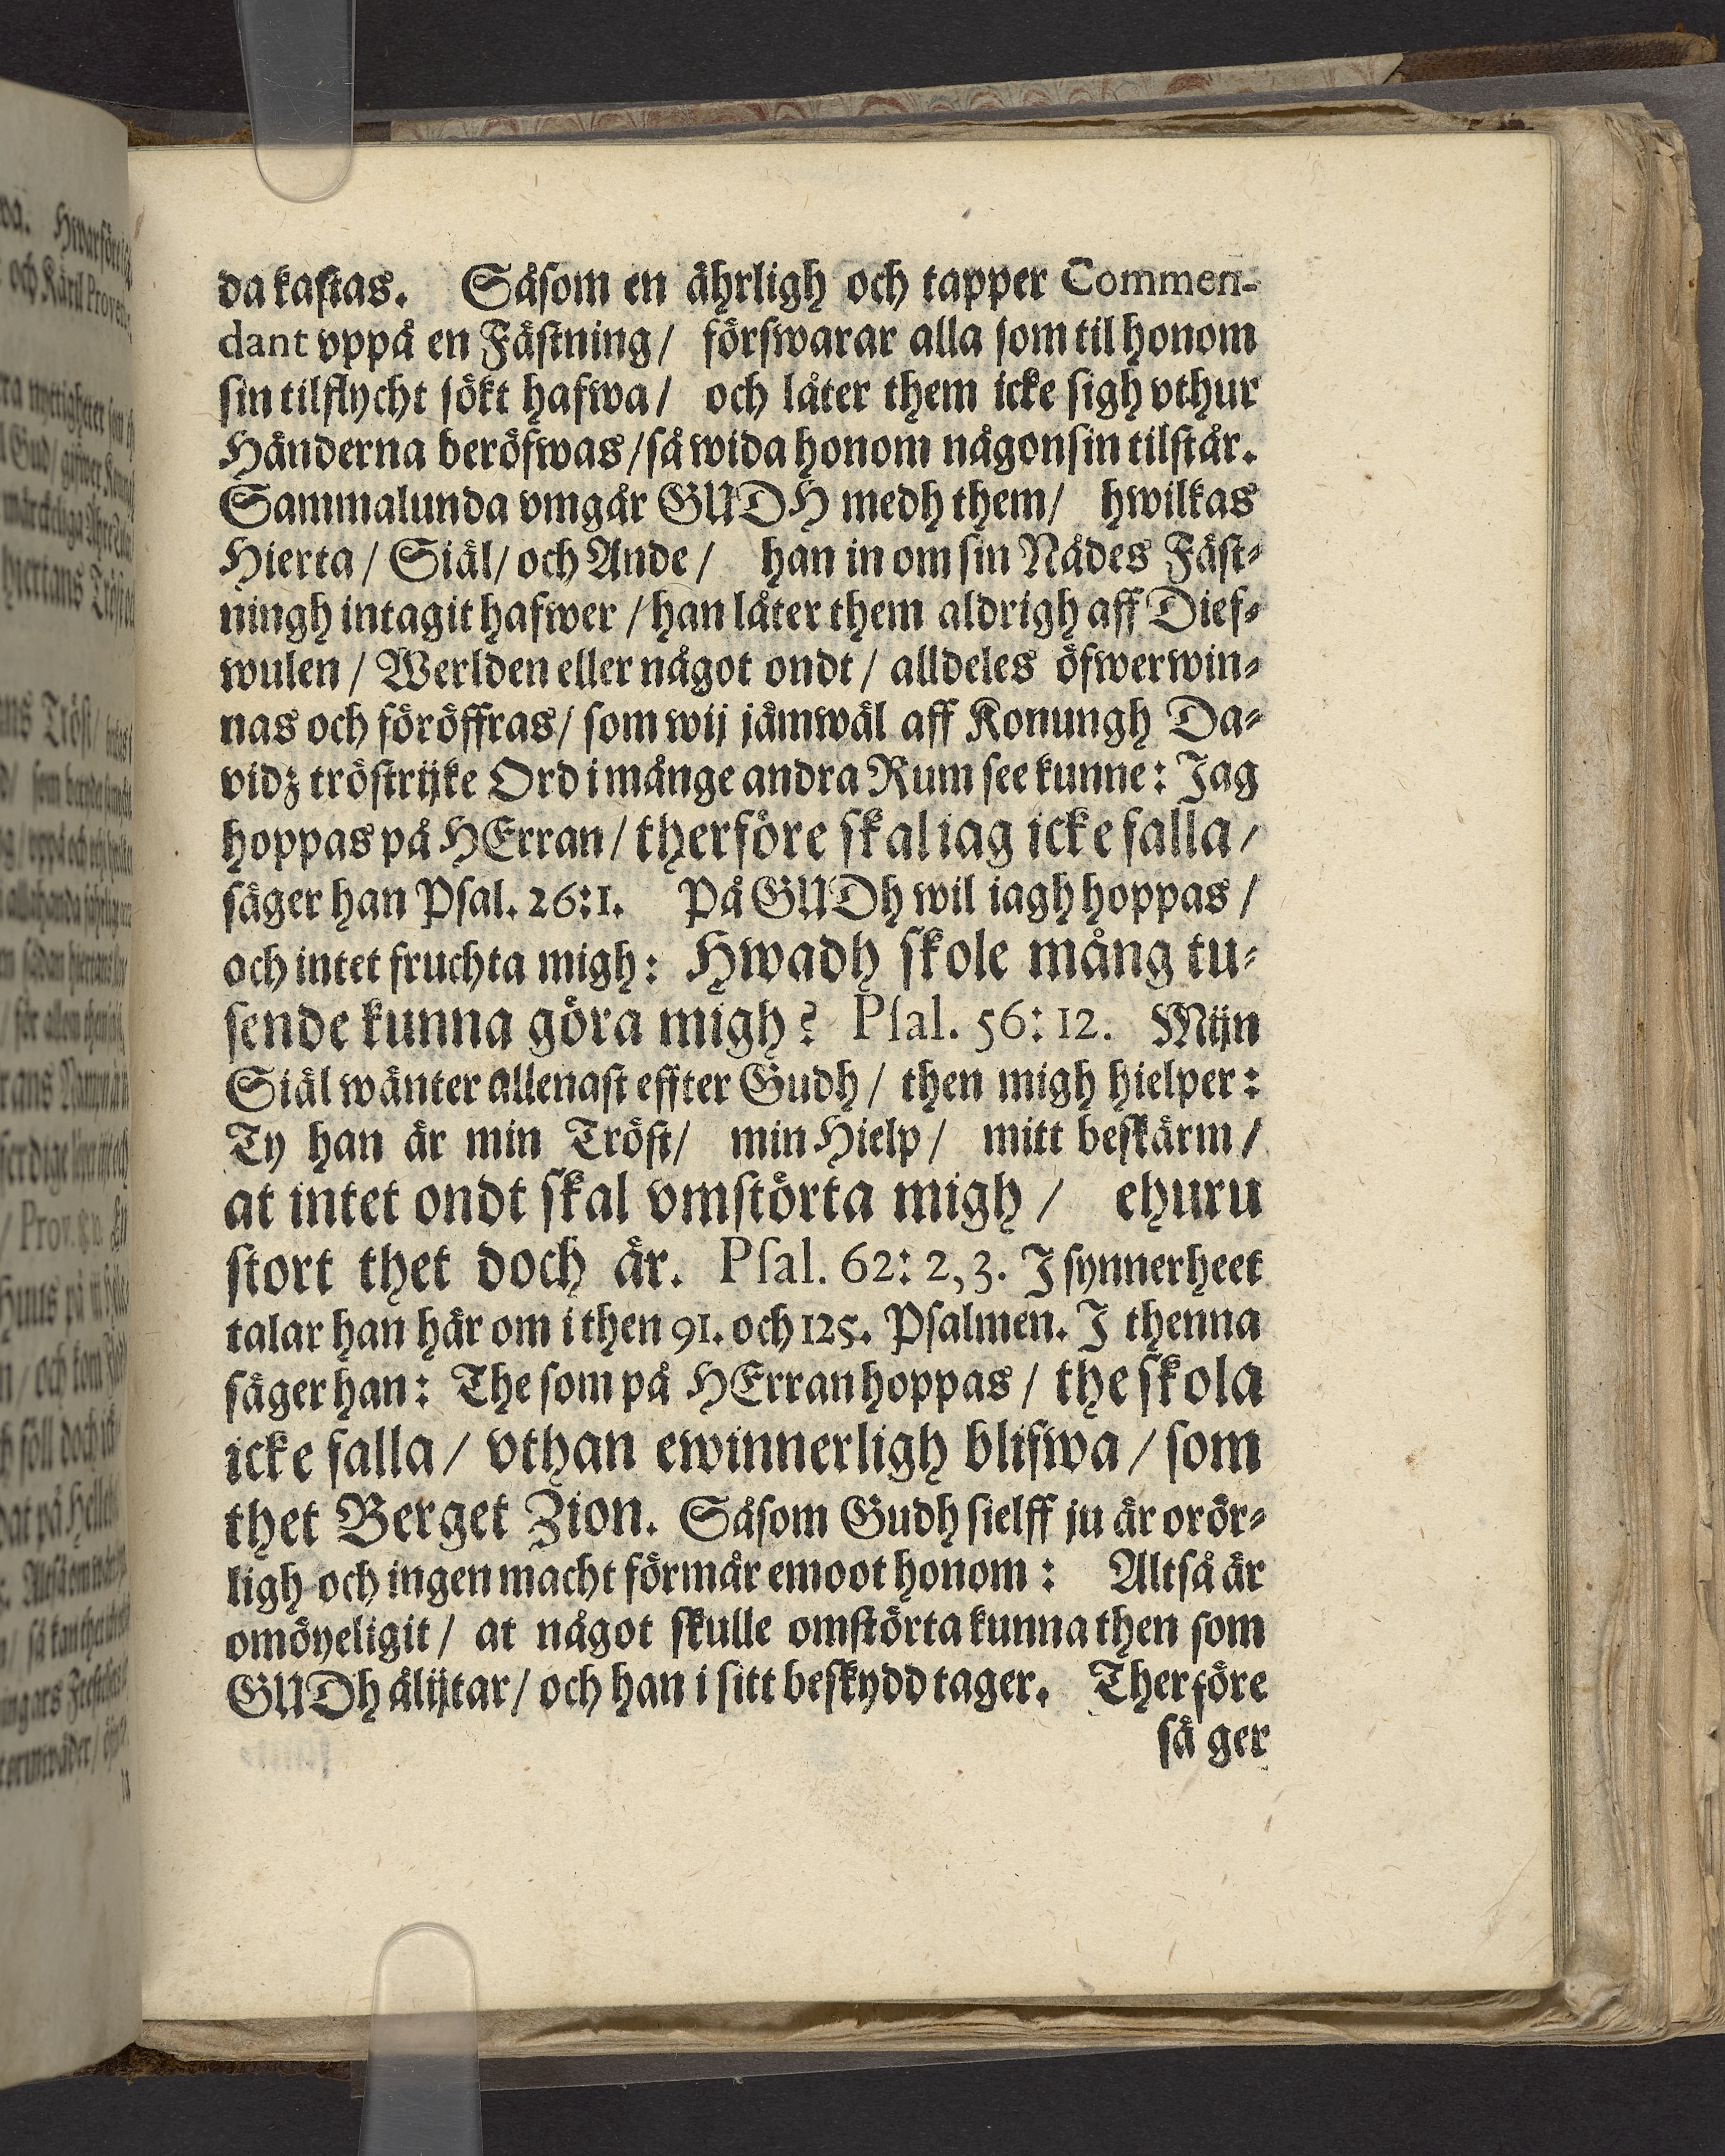 da kastas. Såsom en ährligh och tapper Commen-
dant vppå en Fästning/ förswarar alla som til honom
sin tilflycht sökt hafwa/ och låter them icke sigh vthur
Händerna beröfwas/så wida honom någonsin tilstår.
Sammalunda vmgår GUDH medh them/ hwilkas
Hierta/ Siäl/ och Ande/ han in om sin Nådes Fäst-
ningh intagit hafwer/ han låter them aldrigh aff Dief-
wulen/ Werlden eller något ondt/ alldeles öfwerwin-
nas och föröffras/ som wij jämwäl aff Konungh Da-
vidz tröstrijke Ord i månge andra Rum see kunne: Jag
hoppas på HErran/ therföre skal iag icke falla/
säger han Psal. 26:1. På GUDh wil iagh hoppas/
och intet fruchta migh: Hwadh skole mång tu-
sende kunna göra migh? Psal. 56: 12. Mijn
Siäl wänter allenast effter Gudh/ then migh hielper:
Ty han är min Tröst/ min Hielp/ mitt beskärm/
at intet ondt skal vmstörta migh/ ehuru
stort thet doch är. Psal. 62: 2,3. J synnerheet
talar han här om i then 91. och 125. Psalmen. J thenna
säger han: The som på HErran hoppas/ the skola
icke falla/ vthan ewinnerligh blifwa/ som
thet Berget Zion. Såsom Gudh sielff ju är orör-
ligh och ingen macht förmår emoot honom: Altså är
omöyeligit/ at något skulle omstörta kunna then som
GUDh ålijtar/ och han i sitt beskydd tager. Therföre
sä ger